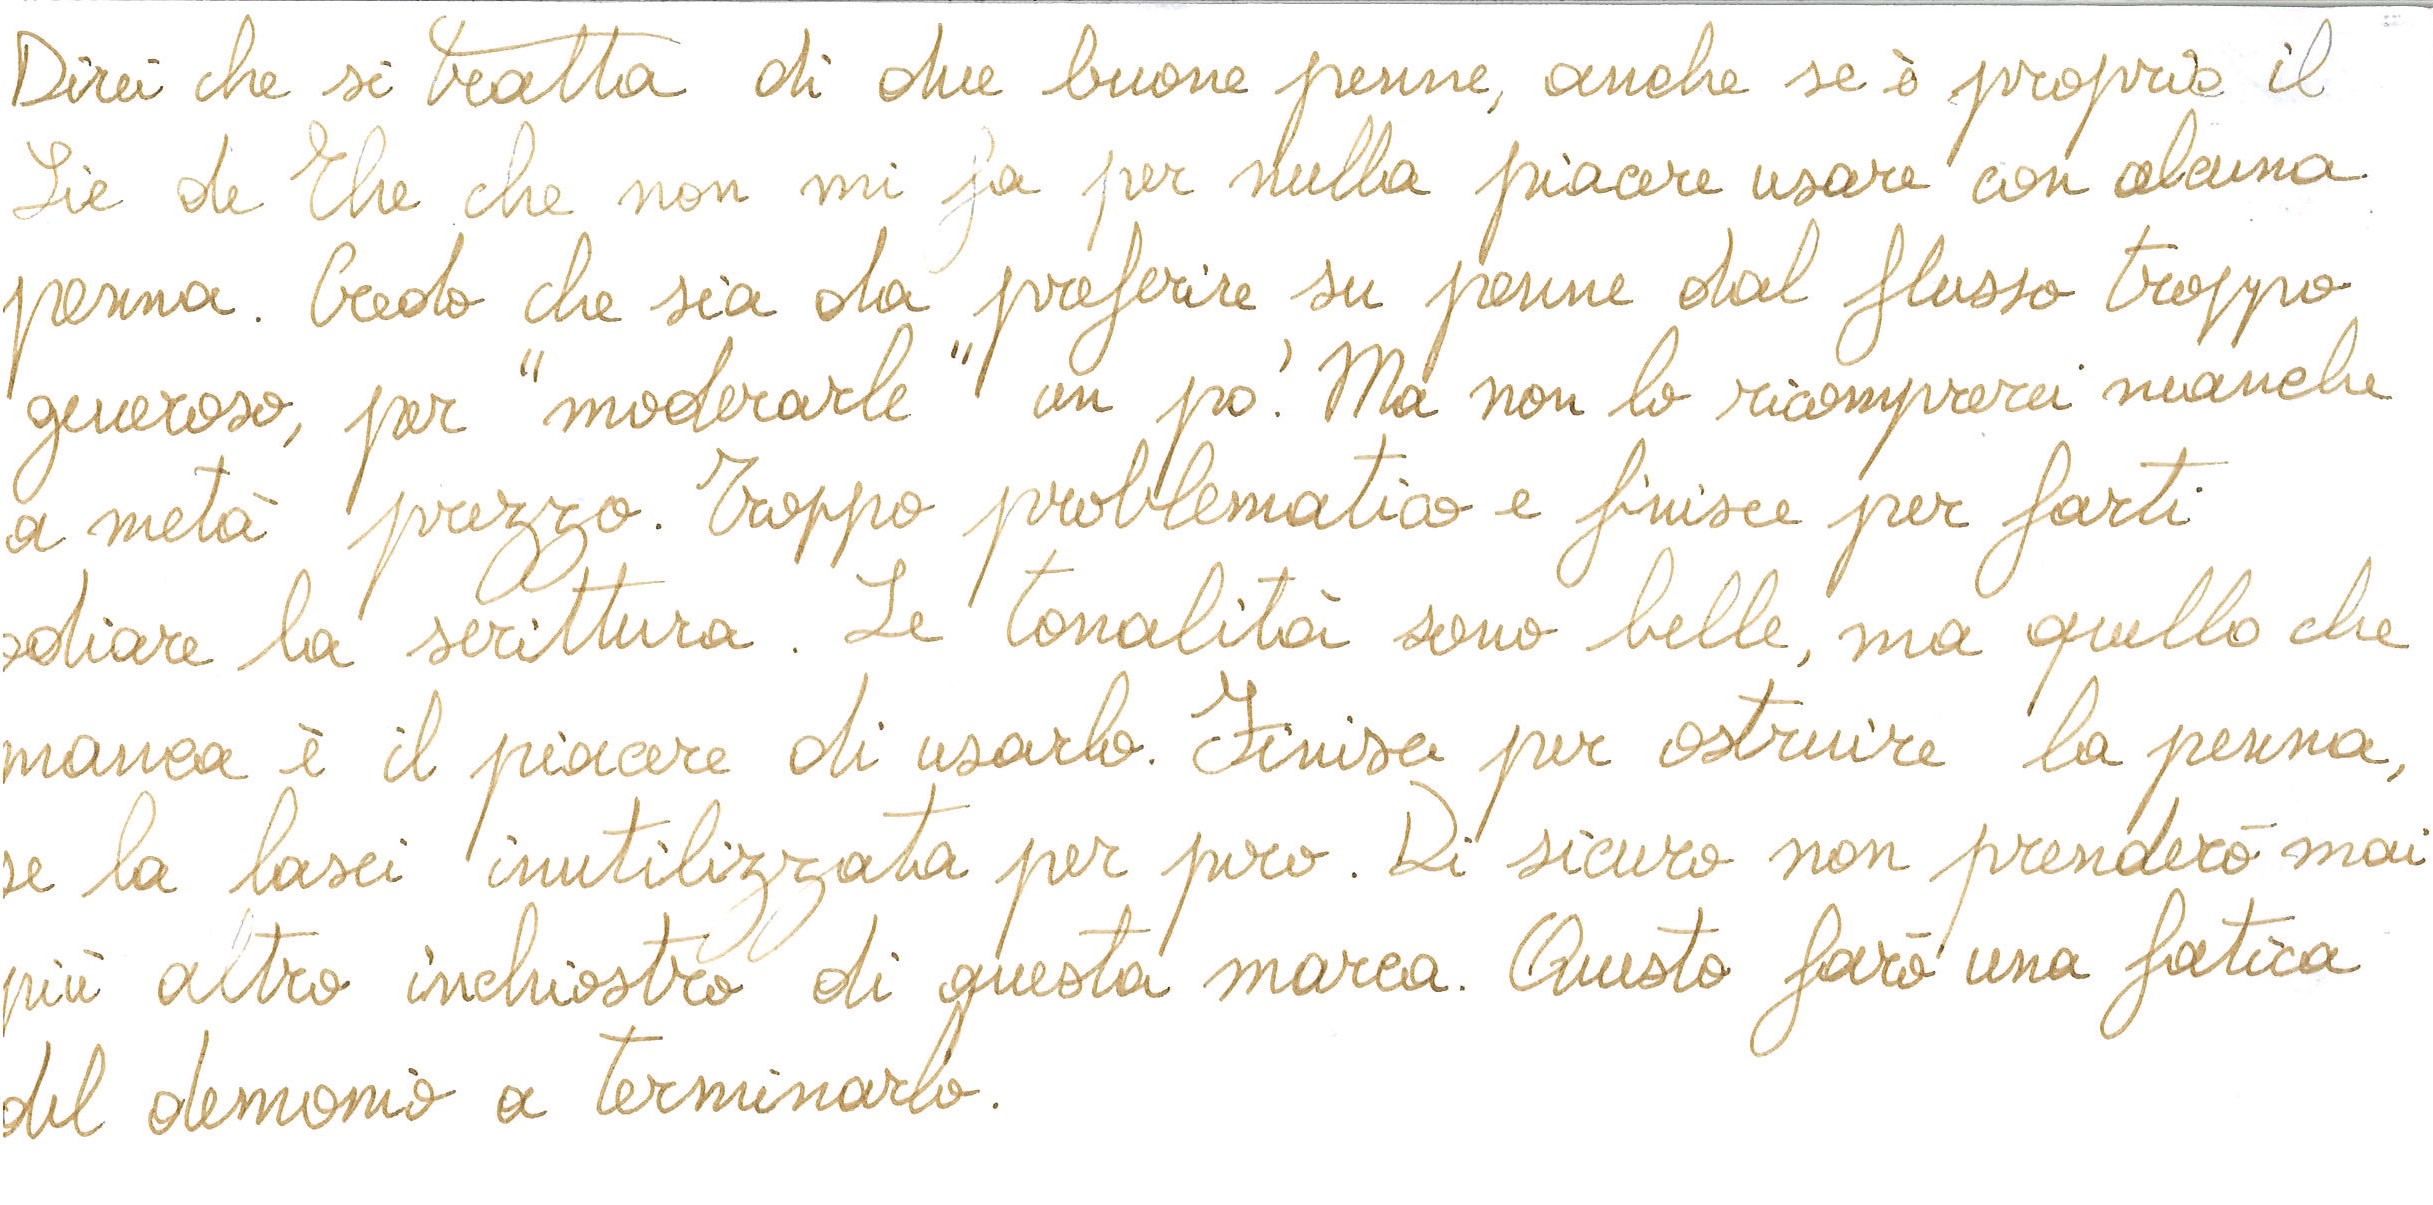 Direi che si tratta di due buone penne, anche se è proprio il
Lie de Thé che non mi fa per nulla piacere usare con alcuna
penna. Credo che sia da preferire su penne dal flusso troppo
generoso, per "moderarle" un po'. Ma non lo ricomprerei neanche
a metà prezzo. Troppo problematico e finisce per farti
odiare la scrittura. Le tonalità sono belle, ma quello che
manca è il piacere di usarlo. Finisce per ostruire la penna,
se la lasci inutilizzata per poco. Di sicuro non prenderò mai
più altro inchiostro di questa marca. Questo farò una fatica
del demonio a terminarlo.